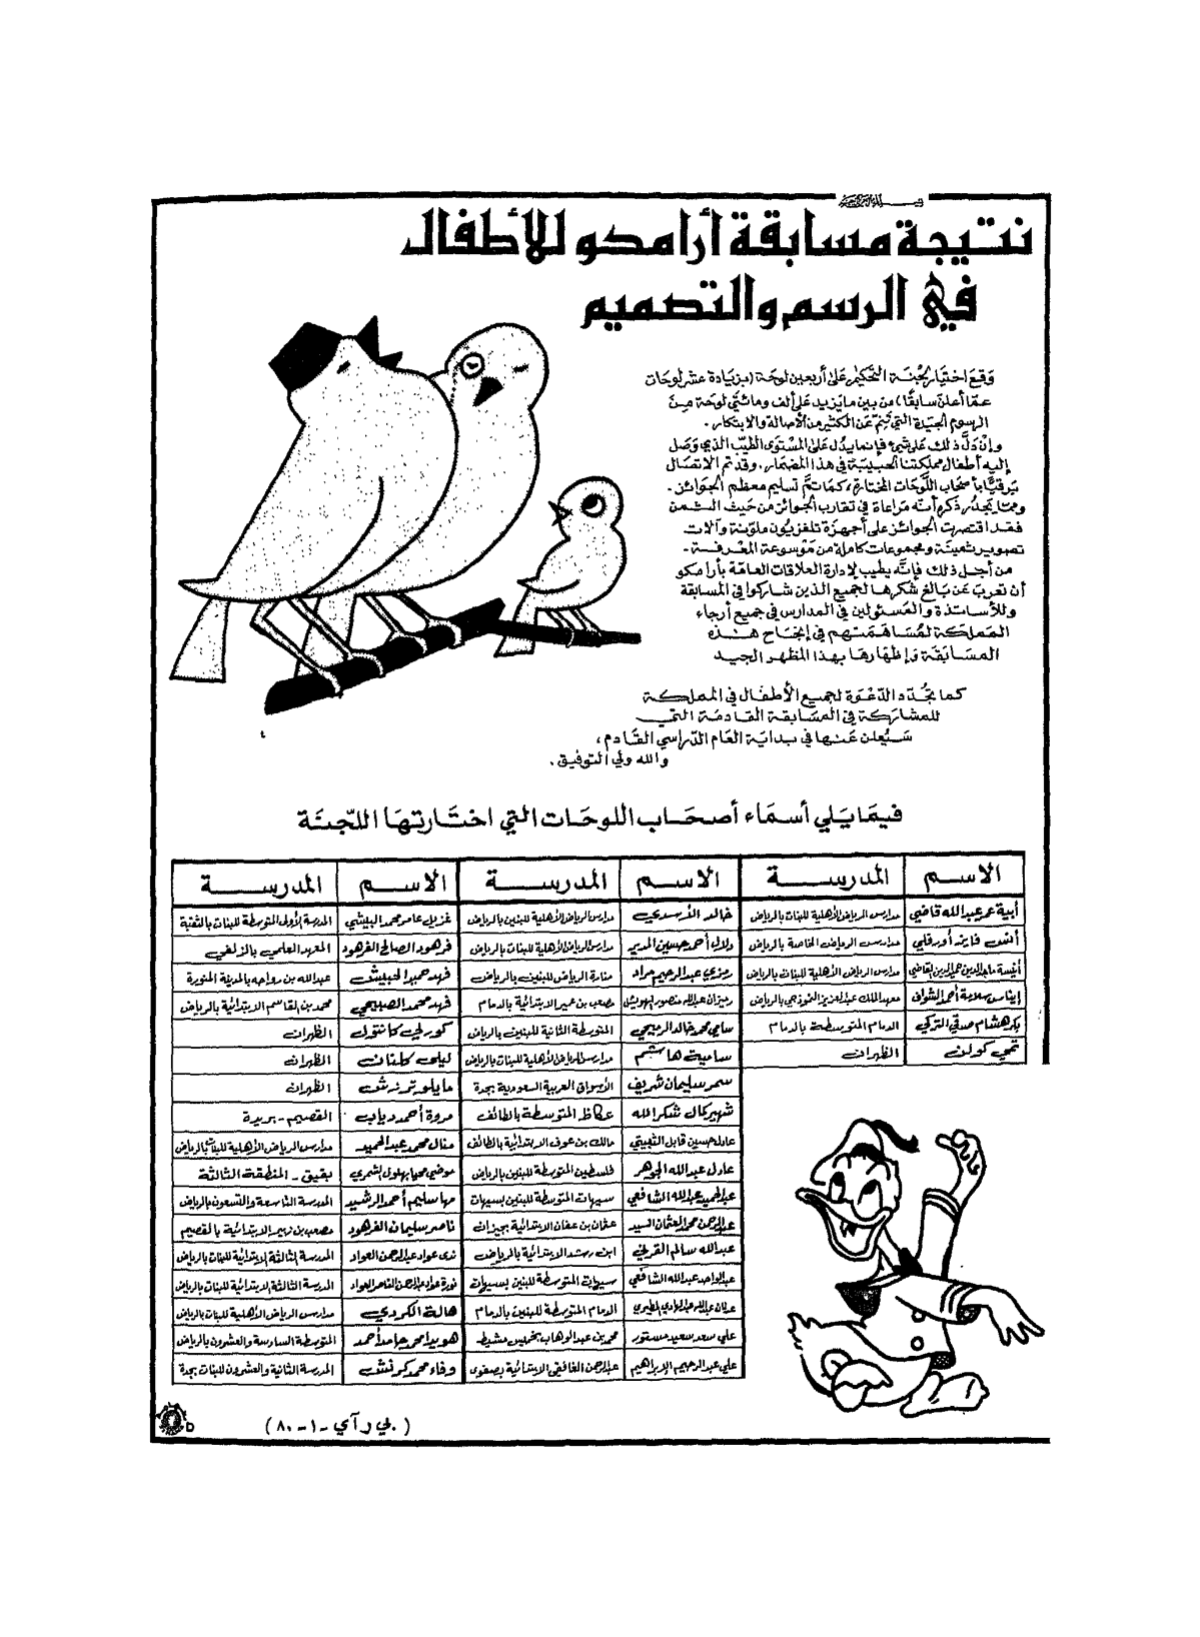 بسم الله الرحمن الرحيم
نتيجة مسابقة أرامكو للأطفال
في الرسم والتصميم
وقع اختيار لجنة التحكيم على أربعين لوحة (بزيادة عشر لوحات
عما أعلن سابقًا) من بين ما يزيد على ألف ومائتي لوحة من
الرسوم الجيدة التي تنم عن الكثير من الأصالة والابتكار.
وإن دل ذلك على شيء فإنما يدل على المستوى الطيب الذي وصل
إليه أطفال مملكتنا الحبيبة في هذا المضمار. وقد تم الاتصال
برقيًا بأصحاب اللوحات المختارة، كما تم تسليم معظم الجوائز.
ومما يجدر ذكره أنه مراعاة في تقارب الجوائز من حيث الثمن
فقد اقتصرت الجوائز على أجهزة تلفزيون ملونة وآلات
تصوير ثمينة ومجموعات كاملة من موسوعة المعرفة.
من أجل ذلك فإنه يطيب لإدارة العلاقات العامة بأرامكو
أن تعرب عن بالغ شكرها لجميع الذين شاركوا في المسابقة
وللأساتذة والمسئولين في المدارس في جميع أرجاء
المملكة لمساهمتهم في إنجاح هذه
المسابقة وإظهارها بهذا المظهر الجيد
كما نجدد الدعوة لجميع الأطفال في المملكة
للمشاركة في المسابقة القادمة التي
سيعلن عنها في بداية العام الدراسي القادم،
والله ولي التوفيق.
فيما يلي أسماء أصحاب اللوحات التي اختارتها اللجنة
الاسم المدرسة الاسم المدرسة الاسم المدرسة
أبية عمر عبدالله قاضي مدارس الرياض الأهلية للبنات بالرياض خالد الأسدي مدارس الرياض الأهلية للبنين بالرياض غزيل عامر محمد البيشي المدرسة الأولى المتوسطة للبنات بالثقبة
أنس فايز أورفلي مدارس الرياض الخاصة بالرياض دلال أحمد حسين المدير مدارس الرياض الأهلية للبنات بالرياض فرهود الصالح الفرهود المعهد العلمي بالزلفي
أنيسة ماجد الدين عز الدين القاضي مدارس الرياض الأهلية للبنات بالرياض رمزي عبدالرحيم مراد منارة الرياض للبنين بالرياض فهد حمد الحبيش عبدالله بن رواحه بالمدينة المنورة
إيناس سلامة أحمد الشواف معهد الملك عبدالعزيز النموذجي بالرياض رميزان عبدالله منصور الهويش مصعب بن عمير الابتدائية بالدمام فهد محمد الصبيحي محمد بن القاسم الابتدائية بالرياض
بكر هشام صدقي التركي الدمام المتوسطة بالدمام سامي محمد خالد الرميحي المتوسطة الثانية للبنين بالرياض كورلي كانتول الظهران
تمي كولن الظهران سامية هاشم مدارس الرياض الأهلية للبنات بالرياض ليلى كلنان الظهران
سمر سليمان شريف الأسواق العربية السعودية بجدة مايلو ترنش الظهران
شهير كمال شكرالله عكاظ المتوسطة بالطائف مروة أحمد دياب القصيم - بريدة
عادل حسين قابل الثبيتي مالك بن عوف الابتدائية بالطائف منال محمد عبدالحميد مدارس الرياض الأهلية للبنات بالرياض
عادل عبدالله الجوهر فلسطين المتوسطة للبنين بالرياض موضي محيا بهلول الشمري بقيق - المنطقة الثالثة
عبدالحميد عبدالله الشافعي سيهات المتوسطة للبنين بسيهات مها سليم أحمد الرشيد المدرسة التاسعة والتسعون بالرياض
عبدالرحمن محمد العثمان السيد عثمان بن عفان الابتدائية بجيزان ناصر سليمان الفرهود مصعب بن زبير الابتدائية بالقصيم
عبدالله سالم القرني ابن رشد الابتدائية بالرياض ندى عواد عبدالرحمن العواد المدرسة الثالثة الابتدائية للبنات بالرياض
عبدالواحد عبدالله الشافعي سيهات المتوسطة للبنين بسيهات نورة عواد عبدالرحمن الناصر العواد المدرسة الثالثة الابتدائية للبنات بالرياض
عدنان عبدالله عبدالهادي المطيري الدمام المتوسطة للبنين بالدمام هالة الكردي مدارس الرياض الأهلية للبنات بالرياض
علي سعد سعيد مستور محمد بن عبدالوهاب بخميس مشيط هويدا محمد حامد أحمد المتوسطة السادسة والعشرون بالرياض
علي عبدالرحيم الابراهيم عبدالرحمن الغافقي الابتدائية بصفوى وفاء محمد كردي المدرسة الثانية والعشرون للبنات بجدة
(بي ر آي - ١ - ٨٠)